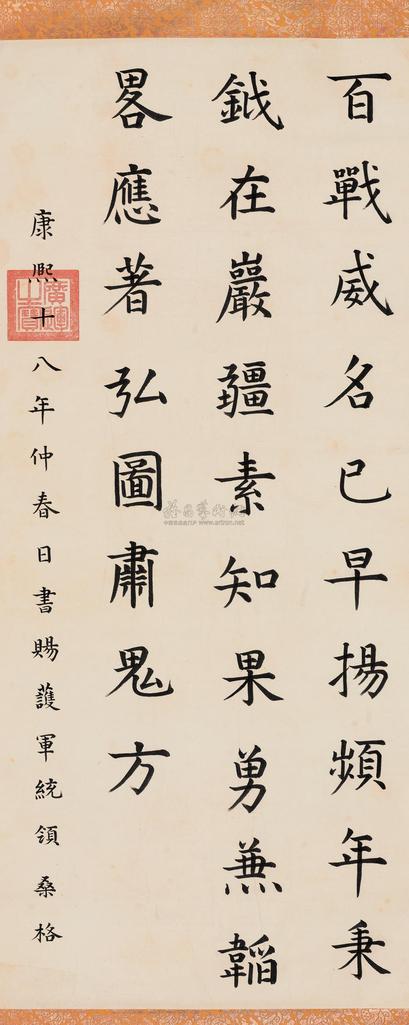 百戰威名已早揚頻年秉
鉞在巖疆素知果勇兼韜
畧應著弘圖肅鬼方
康熙十八年仲春日書賜護軍統領桑格
廣運之寶
www.artron.net